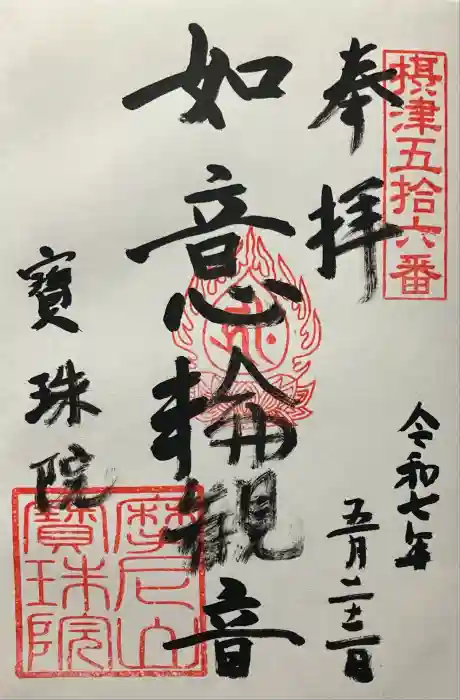 摂津五拾六番
奉拝
令和七年
五月二十二日
如意輪観音
寳珠院
摩尼山
寳珠院